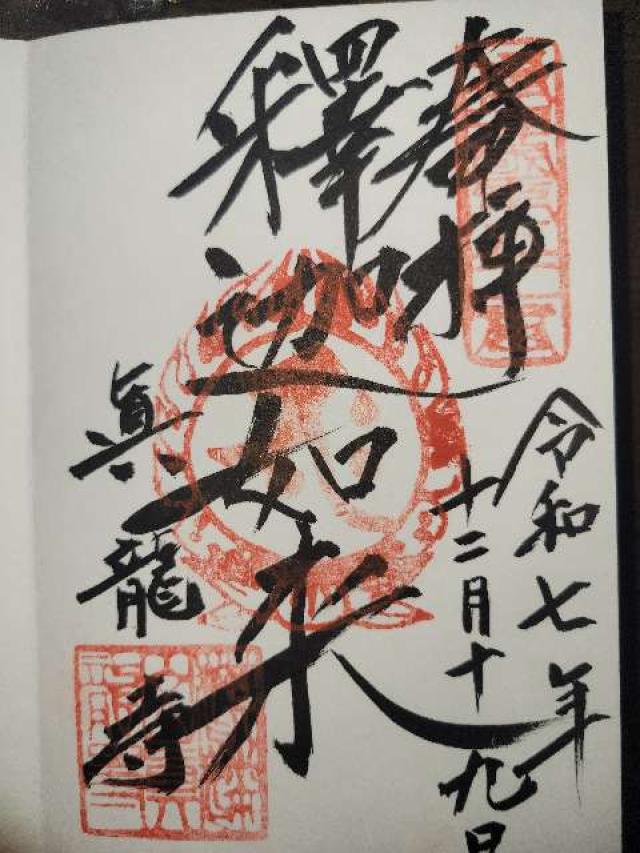 奉拝
令和七年
十二月十九日
釋迦如来
眞龍寺